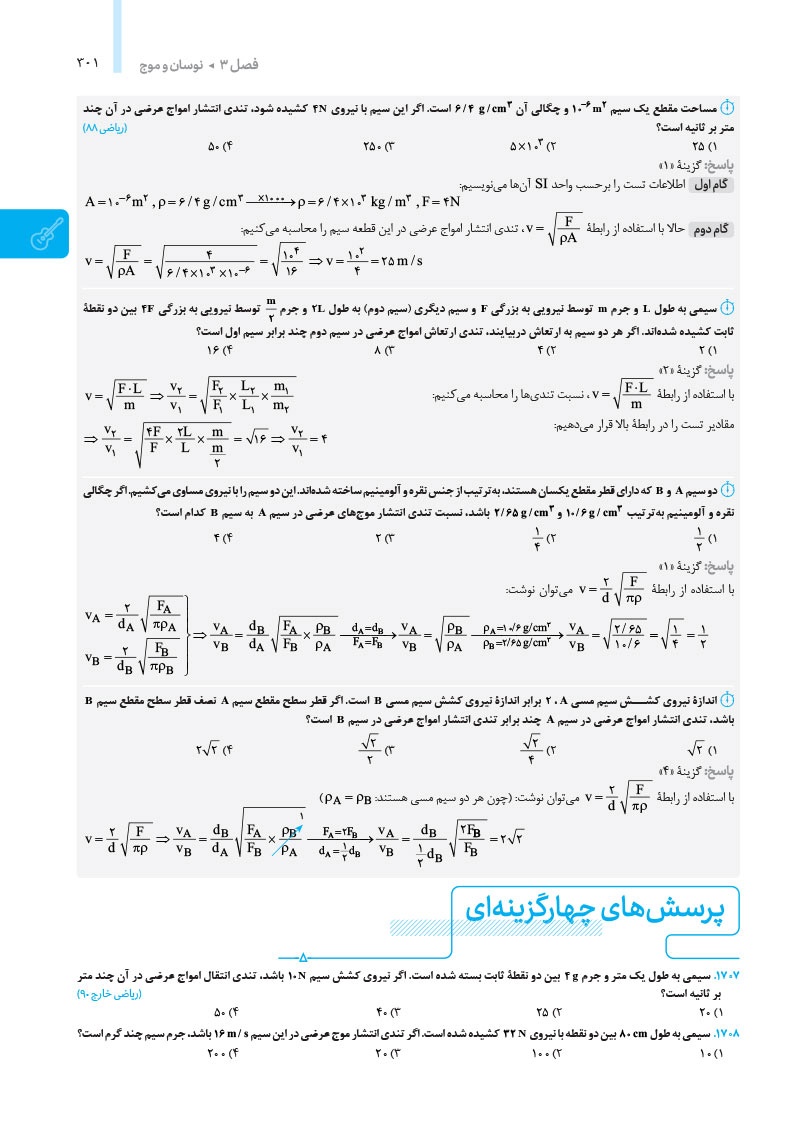 فصل ۳ ◂ نوسان و موج
۳۰۱
مساحت مقطع یک سیم ۱۰⁻⁶ m² و چگالی آن ۶/۴ g/cm³ است. اگر این سیم با نیروی ۴N کشیده شود، تندی انتشار امواج عرضی در آن چند
متر بر ثانیه است؟ (ریاضی ۸۸)
۱) ۲۵ ۲) ۵×۱۰³ ۳) ۲۵۰ ۴) ۵۰
پاسخ: گزینهٔ «۱»
گام اول اطلاعات تست را برحسب واحد SI آن‌ها می‌نویسیم:
A = ۱۰⁻⁶ m² , ρ = ۶/۴ g/cm³ —×۱۰۰۰→ ρ = ۶/۴×۱۰³ kg/m³ , F = ۴N
گام دوم حالا با استفاده از رابطهٔ v = √(F/ρA)، تندی انتشار امواج عرضی در این قطعه سیم را محاسبه می‌کنیم:
v = √(F/ρA) = √(۴/(۶/۴×۱۰³×۱۰⁻⁶)) = √(۱۰⁴/۱۶) ⇒ v = ۱۰²/۴ = ۲۵ m/s
سیمی به طول L و جرم m توسط نیرویی به بزرگی F و سیم دیگری (سیم دوم) به طول ۲L و جرم m/۲ توسط نیرویی به بزرگی ۴F بین دو نقطهٔ
ثابت کشیده شده‌اند. اگر هر دو سیم به ارتعاش دربیایند، تندی ارتعاش امواج عرضی در سیم دوم چند برابر سیم اول است؟
۱) ۲ ۲) ۴ ۳) ۸ ۴) ۱۶
پاسخ: گزینهٔ «۲»
با استفاده از رابطهٔ v = √(F·L/m)، نسبت تندی‌ها را محاسبه می‌کنیم:
v = √(F·L/m) ⇒ v₂/v₁ = √(F₂/F₁ × L₂/L₁ × m₁/m₂)
مقادیر تست را در رابطهٔ بالا قرار می‌دهیم:
⇒ v₂/v₁ = √(۴F/F × ۲L/L × m/(m/۲)) = √۱۶ ⇒ v₂/v₁ = ۴
دو سیم A و B که دارای قطر مقطع یکسان هستند، به‌ترتیب از جنس نقره و آلومینیم ساخته شده‌اند. این دو سیم را با نیروی مساوی می‌کشیم. اگر چگالی
نقره و آلومینیم به‌ترتیب ۱۰/۶ g/cm³ و ۲/۶۵ g/cm³ باشد، نسبت تندی انتشار موج‌های عرضی در سیم A به سیم B کدام است؟
۱) ۱/۲ ۲) ۱/۴ ۳) ۲ ۴) ۴
پاسخ: گزینهٔ «۱»
با استفاده از رابطهٔ v = ۲/d √(F/πρ) می‌توان نوشت:
v_A = ۲/d_A √(F_A/πρ_A)
v_B = ۲/d_B √(F_B/πρ_B)
⇒ v_A/v_B = d_B/d_A √(F_A/F_B × ρ_B/ρ_A) —d_A=d_B, F_A=F_B→ v_A/v_B = √(ρ_B/ρ_A) —ρ_A=۱۰/۶ g/cm³, ρ_B=۲/۶۵ g/cm³→ v_A/v_B = √(۲/۶۵ / ۱۰/۶) = √(۱/۴) = ۱/۲
اندازهٔ نیروی کشش سیم مسی A، ۲ برابر اندازهٔ نیروی کشش سیم مسی B است. اگر قطر سطح مقطع سیم A نصف قطر سطح مقطع سیم B
باشد، تندی انتشار امواج عرضی در سیم A چند برابر تندی انتشار امواج عرضی در سیم B است؟
۱) √۲ ۲) √۲/۴ ۳) √۲/۲ ۴) ۲√۲
پاسخ: گزینهٔ «۴»
با استفاده از رابطهٔ v = ۲/d √(F/πρ) می‌توان نوشت: (چون هر دو سیم مسی هستند: ρ_A = ρ_B)
v = ۲/d √(F/πρ) ⇒ v_A/v_B = d_B/d_A √(F_A/F_B × ρ_B/ρ_A ۱) —F_A=۲F_B, d_A=۱/۲ d_B→ v_A/v_B = d_B/(۱/۲ d_B) √(۲F_B/F_B) = ۲√۲
پرسش‌های چهارگزینه‌ای
۱۷۰۷. سیمی به طول یک متر و جرم ۴ g بین دو نقطهٔ ثابت بسته شده است. اگر نیروی کشش سیم ۱۰N باشد، تندی انتقال امواج عرضی در آن چند متر
بر ثانیه است؟ (ریاضی خارج ۹۰)
۱) ۲۰ ۲) ۲۵ ۳) ۴۰ ۴) ۵۰
۱۷۰۸. سیمی به طول ۸۰ cm بین دو نقطه با نیروی ۳۲ N کشیده شده است. اگر تندی انتشار موج عرضی در این سیم ۱۶ m/s باشد، جرم سیم چند گرم است؟
۱) ۱۰ ۲) ۱۰۰ ۳) ۲۰ ۴) ۲۰۰